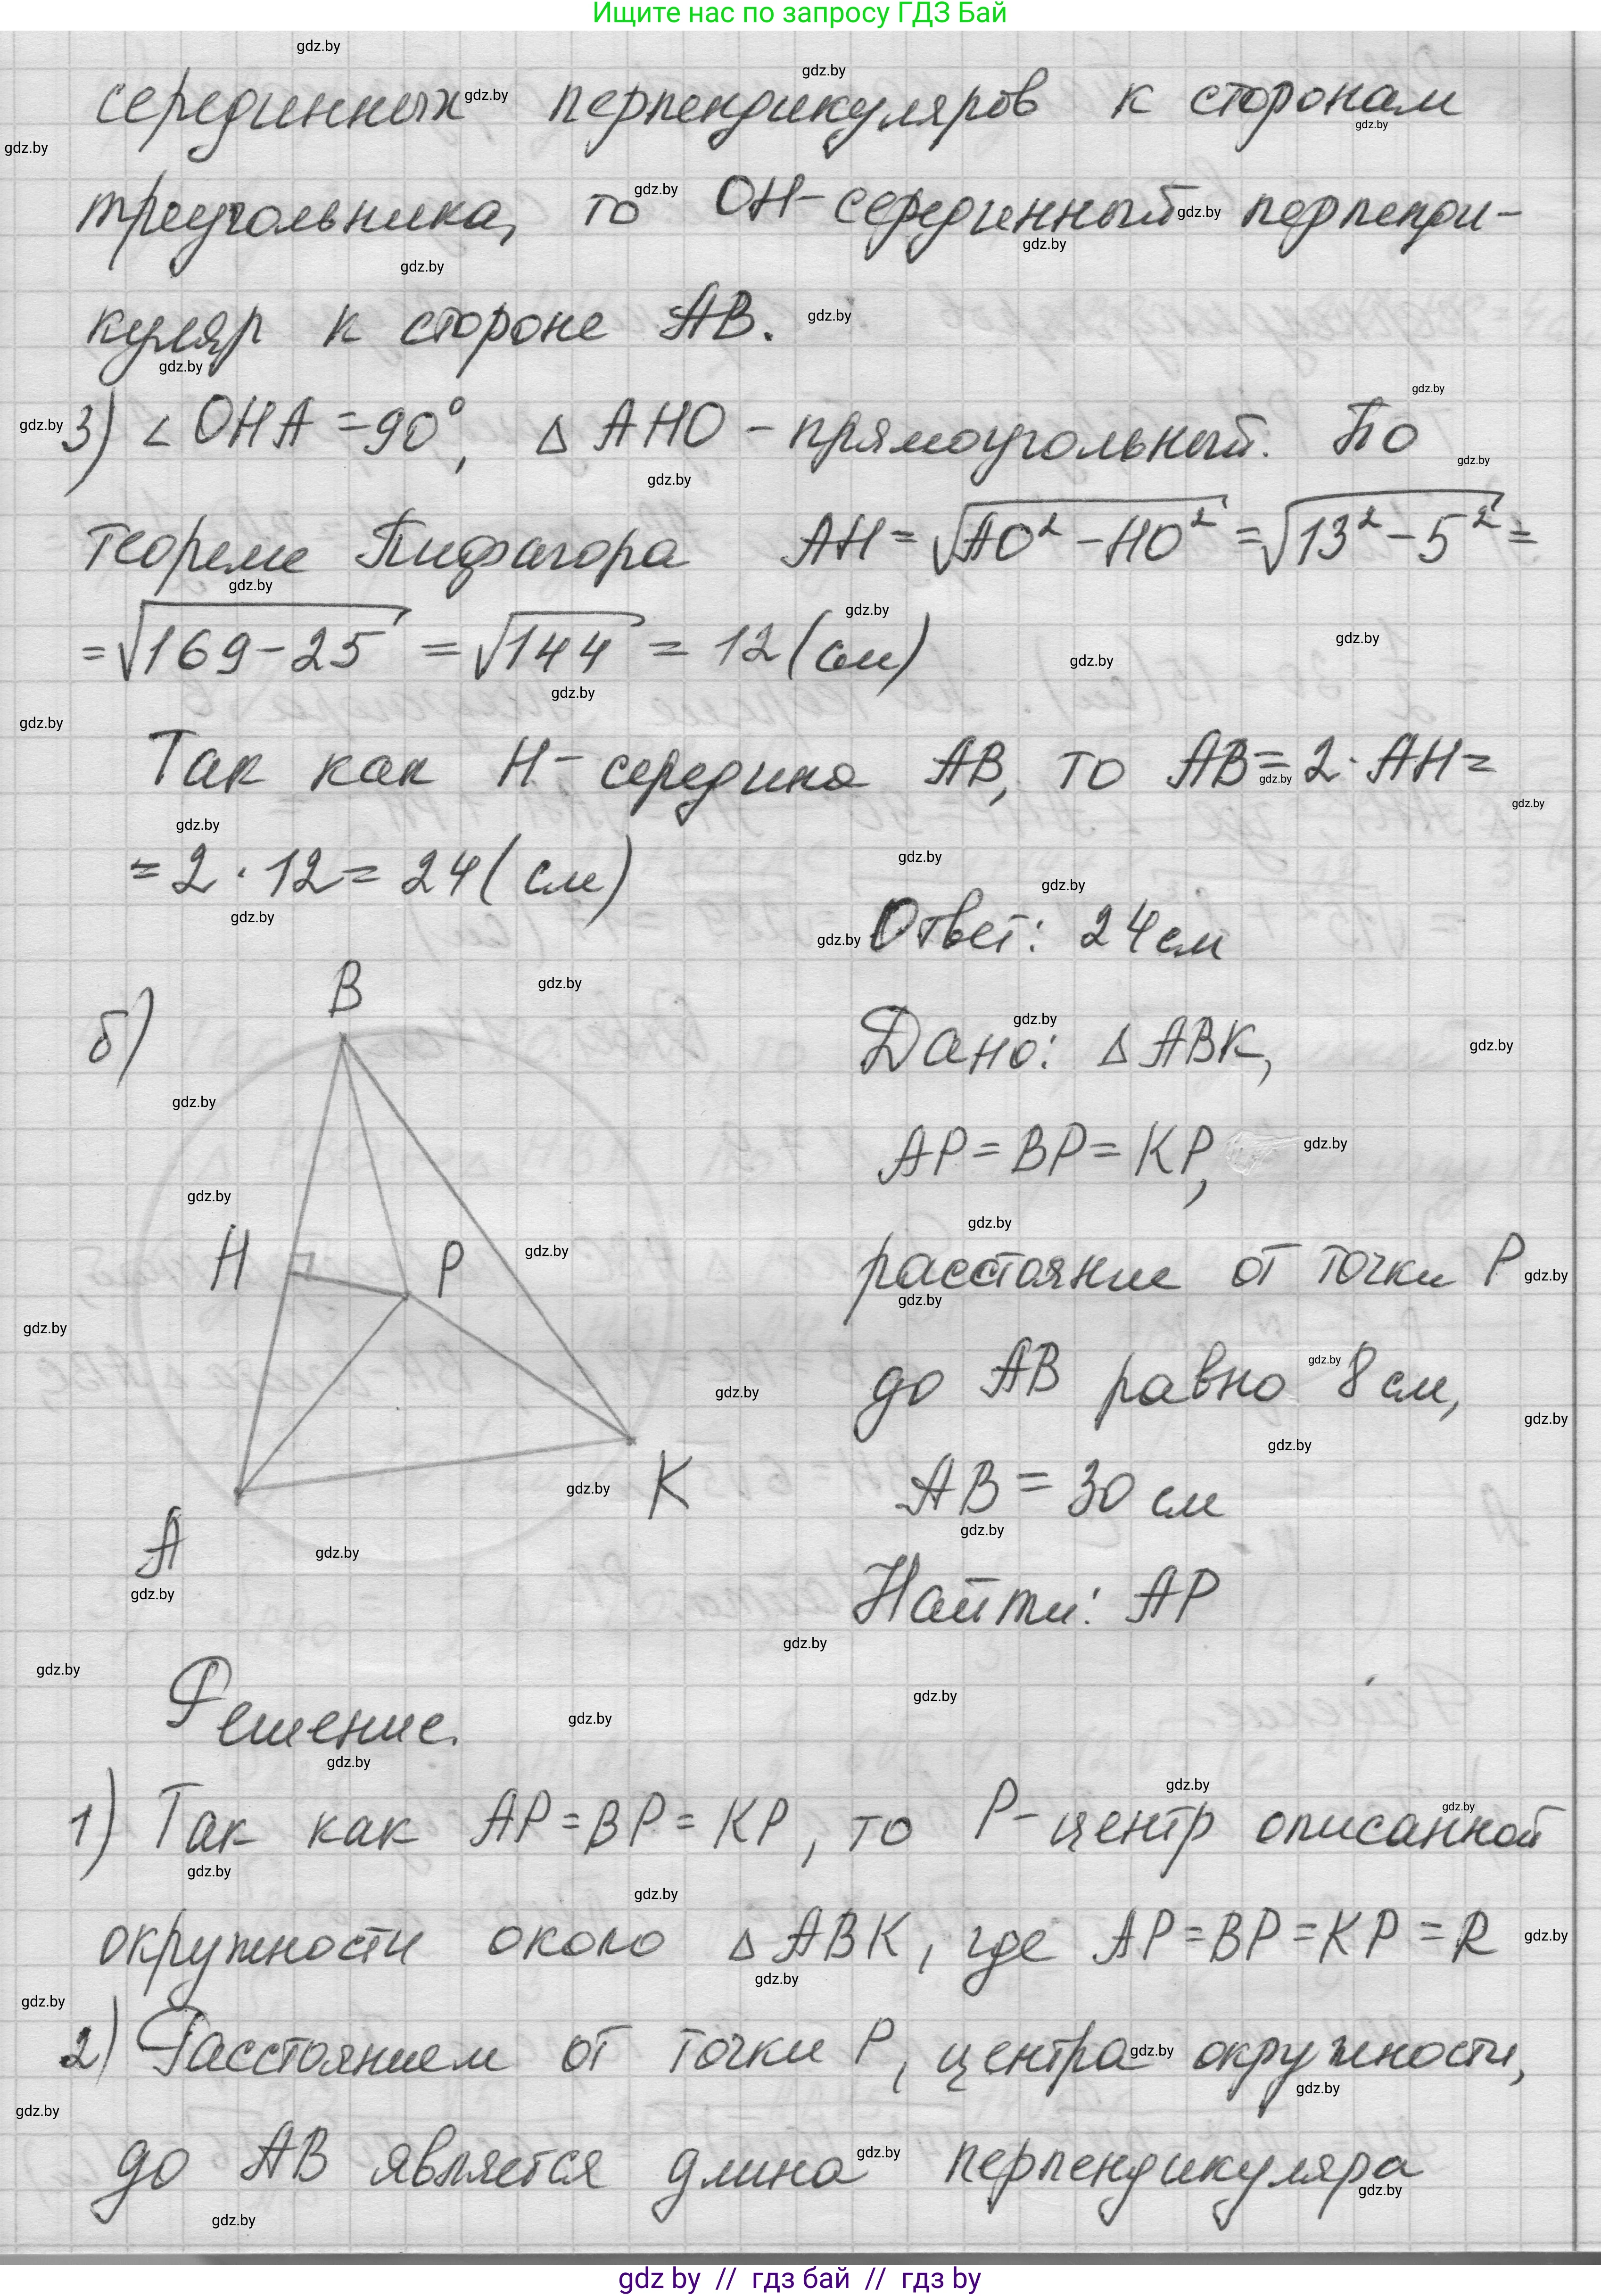 Ищите нас по запросу ГДЗ Бай
серединных перпендикуляров к сторонам
треугольника, то OH - серединный перпенди-
куляр к стороне AB.
3) ∠ OHA = 90°, Δ AHO - прямоугольный. По
теореме Пифагора AH = √AO² - HO² = √13² - 5² =
= √169 - 25 = √144 = 12 (см)
Так как H - середина AB, то AB = 2 · AH =
= 2 · 12 = 24 (см)
Ответ: 24 см
б)
B
H
P
A
K
Дано: Δ ABK,
AP = BP = KP,
расстояние от точки P
до AB равно 8 см,
AB = 30 см
Найти: AP
Решение.
1) Так как AP = BP = KP, то P - центр описанной
окружности около Δ ABK, где AP = BP = KP = R
2) Расстоянием от точки P, центра окружности,
до AB является длина перпендикуляра
gdz by // гдз бай // гдз by